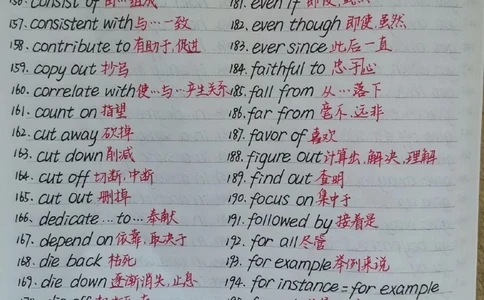 156. consist of 由…组成
157. consistent with 与…一致
158. contribute to 有助于,促进
159. copy out 抄写
160. correlate with 使…与…产生关系
161. count on 指望
162. cut away 砍掉
163. cut down 削减
164. cut off 切断,中断
165. cut out 删掉
166. dedicate...to... 奉献
167. depend on 依靠,取决于
168. die back 枯死
169. die down 逐渐消失,止息
181. even if 即使,虽然
182. even though 即使,虽然
183. ever since 此后一直
184. faithful to 忠于
185. fall from 从…落下
186. far from 毫不,远非
187. favor of 喜欢
188. figure out 计算出,解决,理解
189. find out 查明
190. focus on 集中于
191. followed by 接着是
192. for all 尽管
193. for example 举例来说
194. for instance = for example